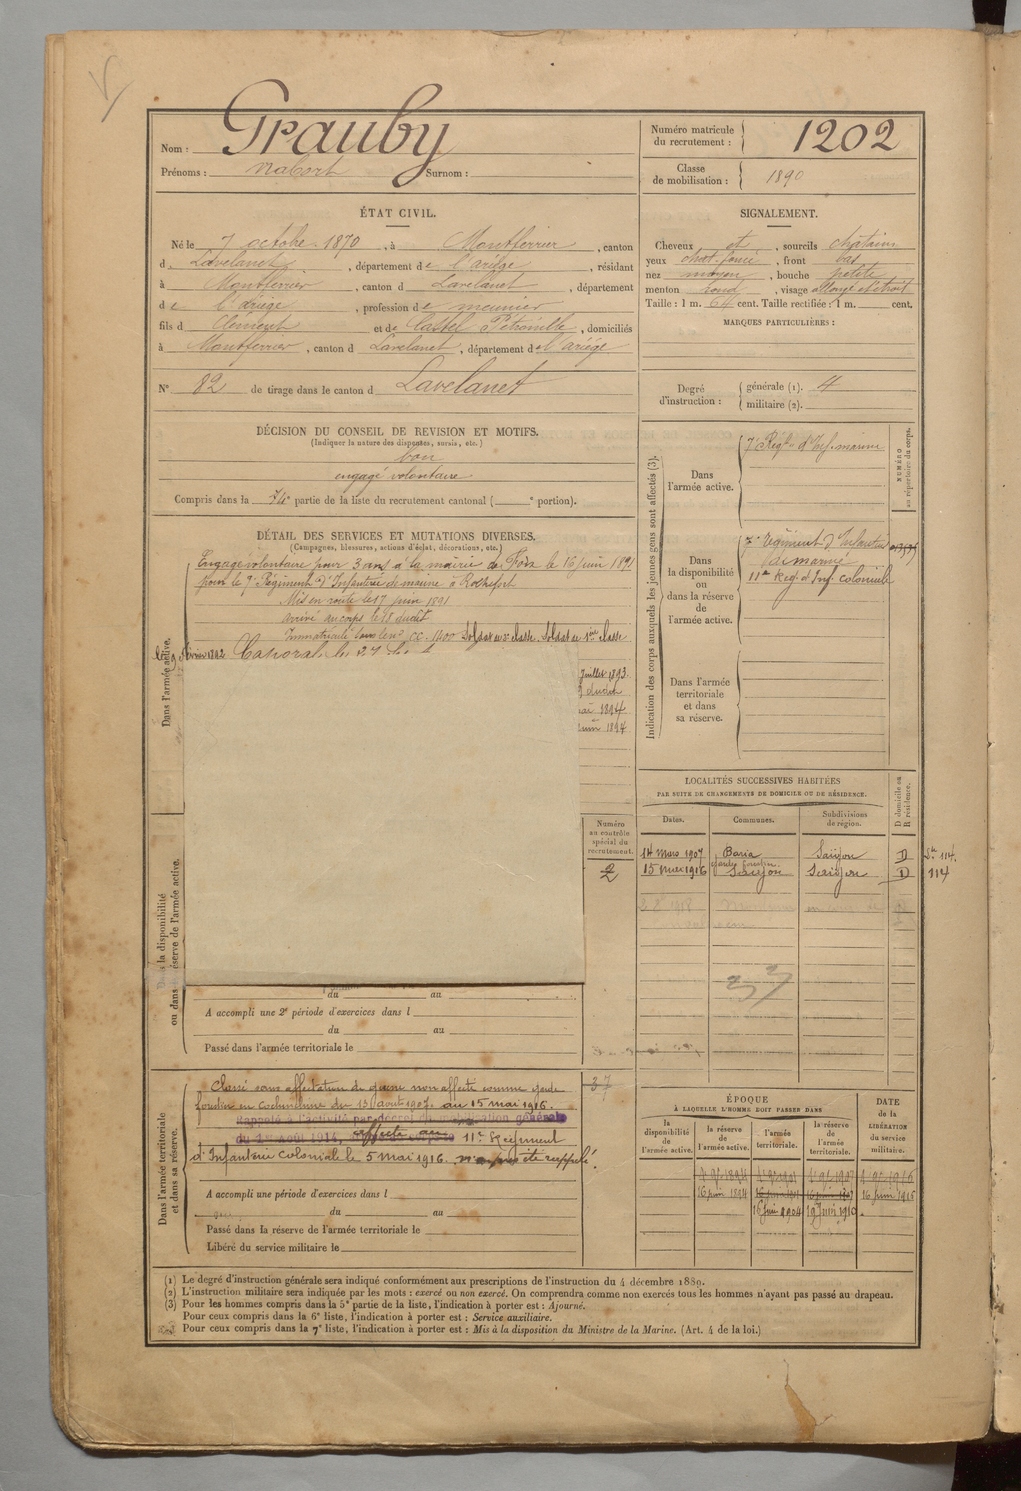 Nom : Grauby
Prénoms : Nabort Surnom :
Numéro matricule du recrutement : 1202
Classe de mobilisation : 1890
ÉTAT CIVIL.
Né le 7 octobre 1870, à Montferrier, canton
d. Lavelanet, département de l'ariège, résidant
à Montferrier, canton d Lavelanet, département
de l'ariège, profession de meunier
fils d Clément et de Castel Pétronille, domiciliés
à Montferrier, canton d Lavelanet, département de l'ariége
N° 82 de tirage dans le canton d Lavelanet
SIGNALEMENT.
Cheveux et, sourcils châtains
yeux chat. foncé, front bas
nez moyen, bouche petite
menton rond, visage allongé et étroit
Taille : 1 m. 64 cent. Taille rectifiée : 1 m. cent.
MARQUES PARTICULIÈRES :
Degré d'instruction : générale (1). 4
militaire (2).
DÉCISION DU CONSEIL DE REVISION ET MOTIFS.
(Indiquer la nature des dispenses, sursis, etc.)
bon
engagé volontaire
Compris dans la partie de la liste du recrutement cantonal ( e portion).
DÉTAIL DES SERVICES ET MUTATIONS DIVERSES.
(Campagnes, blessures, actions d'éclat, décorations, etc.)
Engagé volontaire pour 3 ans à la mairie de Foix le 16 juin 1891
pour le 7e Régiment d'Infanterie de marine à Rochefort
Mis en route le 17 juin 1891
arrivé au corps le 18 dudit
Immatriculé sous le no Soldat de 2e classe. Soldat de 1ère Classe
le 9 février 1892 Caporal le 27
Juillet 1893
dudit
mai 1894
juin 1894
Dans l'armée active.
Dans la disponibilité ou dans la réserve de l'armée active.
Numéro au contrôle spécial du recrutement.
2
du au
A accompli une 2e période d'exercices dans l
du au
Passé dans l'armée territoriale le
Indication des corps auxquels les jeunes gens sont affectés (3).
NUMÉRO au répertoire du corps.
Dans l'armée active.
7e Régt d'Inf. marine
Dans la disponibilité ou dans la réserve de l'armée active.
7e régiment d'Infanterie
de marine
11e Rég. d'Inf. coloniale
Dans l'armée territoriale et dans sa réserve.
LOCALITÉS SUCCESSIVES HABITÉES
PAR SUITE DE CHANGEMENTS DE DOMICILE OU DE RÉSIDENCE.
Dates. Communes. Subdivisions de région. D domicile ou R résidence.
14 mars 1907 Baria Saïgon D 114.
garde forestier
15 Mai 1916 Saigon Saigon D 114
Dans l'armée territoriale et dans sa réserve.
37
Classé sans affectation de guerre non affecté comme garde
forestier en Cochinchine du 13 août 1907 au 15 mai 1916.
Rappelé à l'activité par décret de mobilisation générale
du 1er Août 1914, affecté au 11e Régiment
d'Infanterie Coloniale le 5 Mai 1916. n'a pas été rappelé.
A accompli une période d'exercices dans l
du au
Passé dans la réserve de l'armée territoriale le
Libéré du service militaire le
ÉPOQUE
À LAQUELLE L'HOMME DOIT PASSER DANS
DATE de la LIBÉRATION du service militaire.
la disponibilité de l'armée active. la réserve de l'armée active. l'armée territoriale. la réserve de l'armée territoriale.
16 juin 1894 16 juin 1915
16 juin 1904 19 Juin 1910
(1) Le degré d'instruction générale sera indiqué conformément aux prescriptions de l'instruction du 4 décembre 1889.
(2) L'instruction militaire sera indiquée par les mots : exercé ou non exercé. On comprendra comme non exercés tous les hommes n'ayant pas passé au drapeau.
(3) Pour les hommes compris dans la 5e partie de la liste, l'indication à porter est : Ajourné.
Pour ceux compris dans la 6e liste, l'indication à porter est : Service auxiliaire.
Pour ceux compris dans la 7e liste, l'indication à porter est : Mis à la disposition du Ministre de la Marine. (Art. 4 de la loi.)